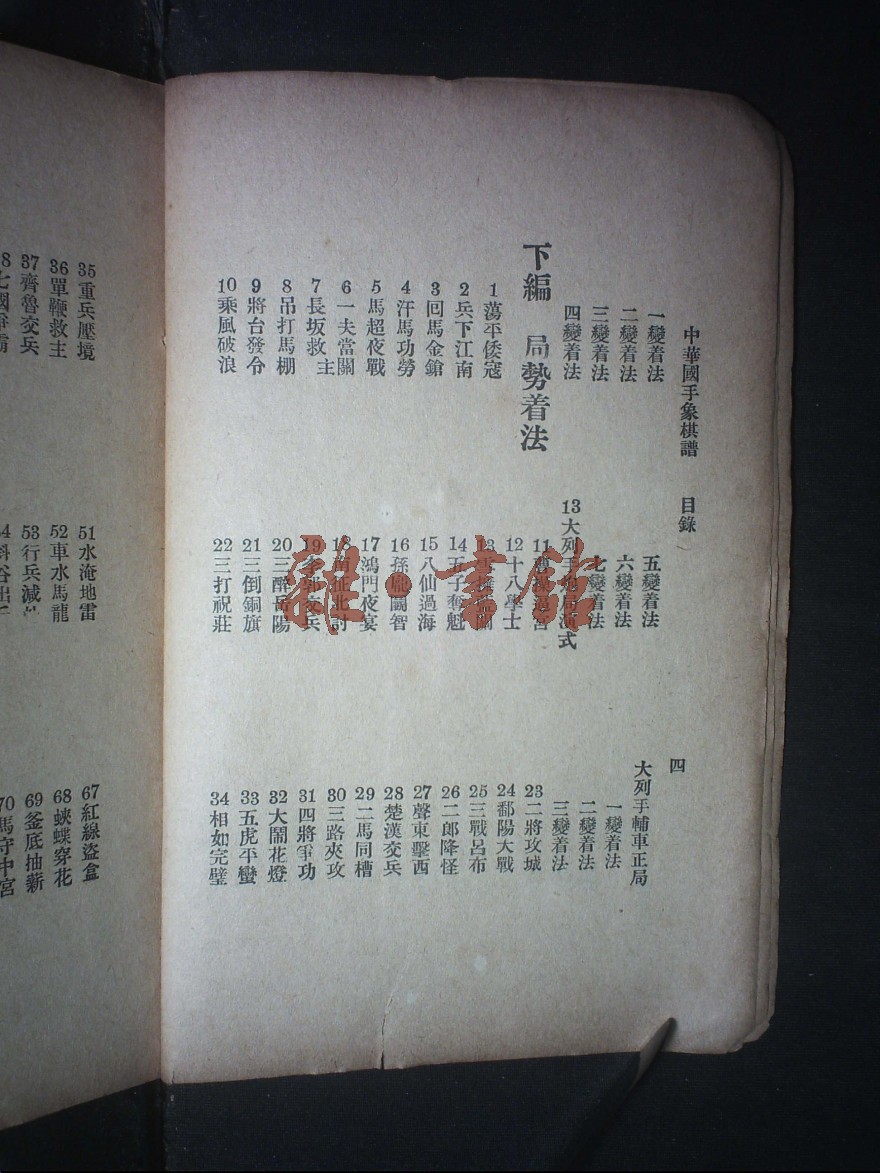 中華國手象棋譜 目錄 四
一變着法
二變着法
三變着法
四變着法
五變着法
六變着法
七變着法
13大列手炮局演式
大列手輔車正局
一變着法
二變着法
三變着法
下編 局勢着法
1蕩平倭寇
2兵下江南
3回馬金鎗
4汗馬功勞
5馬超夜戰
6一夫當關
7長坂救主
8吊打馬棚
9將台發令
10乘風破浪
11曹操過宮
12十八學士
13雪擁藍關
14五子奪魁
15八仙過海
16孫龐鬬智
17鴻門夜宴
18南征北討
19李郭交兵
20三醉岳陽
21三倒銅旗
22三打祝莊
23二將攻城
24鄱陽大戰
25三戰呂布
26二郎降怪
27聲東擊西
28楚漢交兵
29二馬同槽
30三路夾攻
31四將爭功
32大鬧花燈
33五虎平蠻
34相如完璧
35重兵壓境
36單鞭救主
37齊魯交兵
七國爭霸
51水淹地雷
52車水馬龍
53行兵減灶
斜谷出
67紅線盜盒
68蛺蝶穿花
69釜底抽薪
70馬守中宮
雜·書館